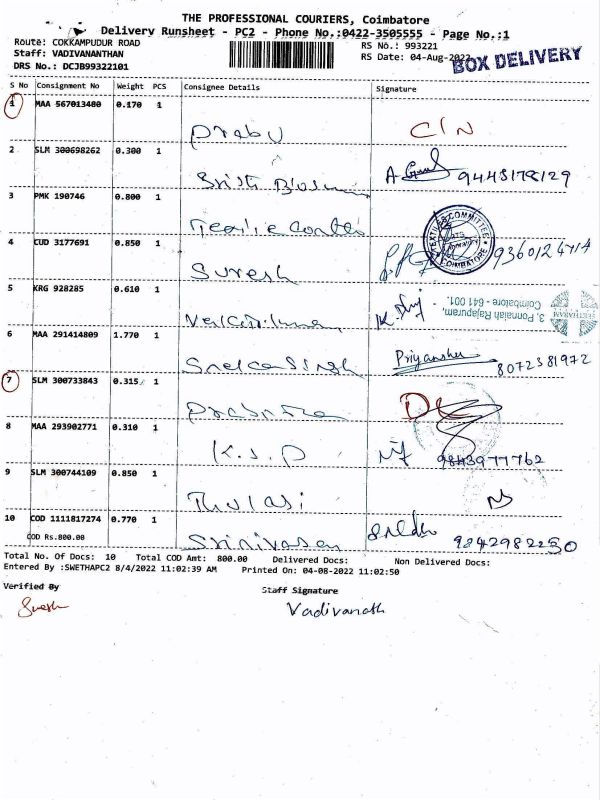 THE PROFESSIONAL COURIERS, Coimbatore
Delivery Runsheet - PC2 - Phone No.:0422-3505555 - Page No.:1
Route: COKKAMPUDUR ROAD
RS No.: 993221
Staff: VADIVANANTHAN
RS Date: 04-Aug-2022
BOX DELIVERY
DRS No.: DCJB99322101
S No Consignment No Weight PCS Consignee Details Signature
1 MAA 567013480 0.170 1
Prabu C/N
2 SLM 300698262 0.300 1
9443178129
3 PMK 190746 0.800 1
COIMBATORE
4 CUD 3177691 0.850 1
Suresh
5 KRG 928285 0.610 1
3, Ponnaiah Rajapuram,
Coimbatore - 641 001.
6 MAA 291414809 1.770 1
Priyanshu
8072381972
7 SLM 300733843 0.315 1
8 MAA 293902771 0.310 1
K.S.P 9843977762
9 SLM 300744109 0.850 1
Thulasi
10 COD 1111817274 0.770 1
COD Rs.800.00
Srinivasan 9842982250
Total No. Of Docs: 10 Total COD Amt: 800.00 Delivered Docs: Non Delivered Docs:
Entered By :SWETHAPC2 8/4/2022 11:02:39 AM Printed On: 04-08-2022 11:02:50
Verified By
Staff Signature
Suresh
Vadivanath